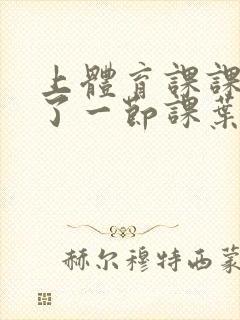 上體育課課
了一節課葉
赫尔穆特西蒙